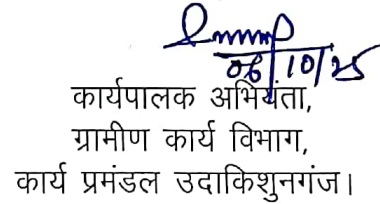 06/10/25
कार्यपालक अभियंता,
ग्रामीण कार्य विभाग,
कार्य प्रमंडल उदाकिशुनगंज।